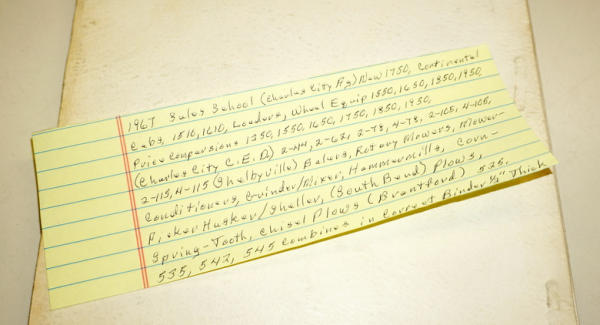 1967 Sales School (Charles City Pg) New 1750, Continental
Cabs, 1510, 1610, Loaders, Wheel Equip 1550, 1650, 1850, 1950,
Price Comparsions 1250, 1550, 1650, 1750, 1850, 1950,
(Charles City C.E.D.) 2-44, 2-62, 2-78, 4-78, 2-105, 4-105,
2-115, 4-115 (Shelbyville) Balers, Rotary Mowers, Mower-
Conditioners, Grinder/Mixer, Hammermills, Corn-
Picker Husker/Sheller, (South Bend) Plows,
Spring-Tooth, Chisel Plows (Brantford) 525,
535, 542, 545 Combines in Correct Binder 1/2" Thick